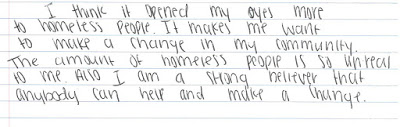 I think it opened my eyes more
to homeless people. It makes me want
to make a change in my community.
The amount of homeless people is so unreal
to me. Also I am a strong believer that
anybody can help and make a change.